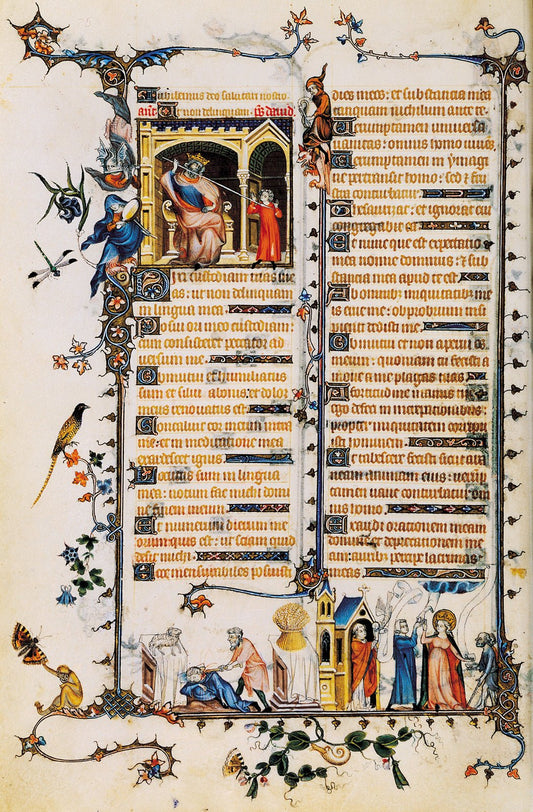 Iubilemus deo salutari nostro
Ut non delinquam. ps david
Dixi custodiam vias me
as: ut non delinquam
in lingua mea.
Posui ori meo custodiam:
cum consisteret peccator ad
versum me.
Obmutui et humiliatus
sum et silui a bonis: et dolor
meus renovatus est
Concaluit cor meum intra
me: et in meditatione mea
exardescet ignis
Locutus sum in lingua
mea: notum fac michi domi
ne finem meum
Et numerum dierum meo
rum quis est: ut sciam quid
desit michi.
Ecce mensurabiles posuisti
dies meos: et substantia mea
tanquam nichilum ante te.
Verumptamen universa
vanitas: omnis homo vivens
Verumptamen in ymagi
ne pertransit homo: sed et frus
tra conturbatur
Thesaurizat: et ignorat cui
congregabit ea
Et nunc que est expectatio
mea nonne dominus: et sub
stantia mea apud te est
Ab omnibus iniquitatibus me
is erue me: obprobrium insi
pienti dedisti me
Obmutui et non aperui os
meum: quoniam tu fecisti a
move a me plagas tuas
A fortitudine manus tue e
go defeci in increpationibus:
propter iniquitatem corripu
isti hominem
Et tabescere fecisti sicut ara
neam animam eius: verump
tamen vane conturbatur om
nis homo
Exaudi orationem meam
domine et deprecationem me
am: auribus percipe lacrimas
meas